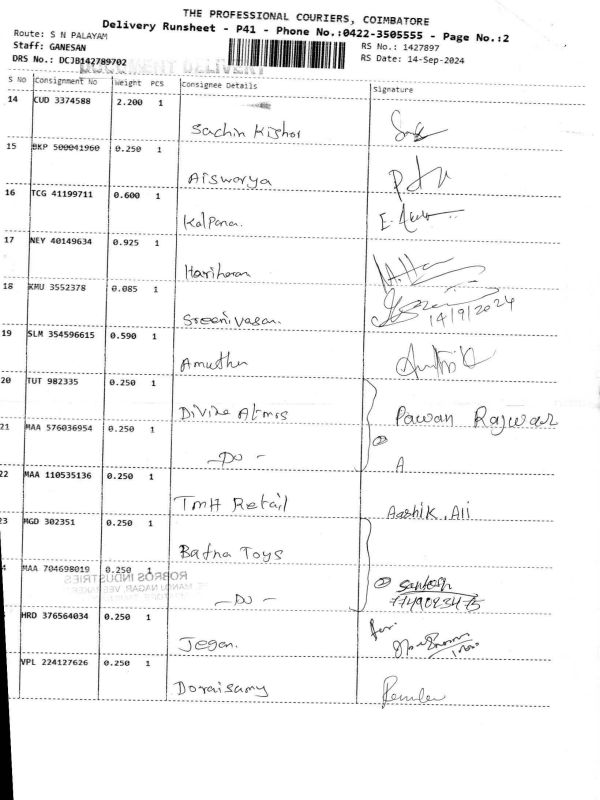 THE PROFESSIONAL COURIERS, COIMBATORE
Delivery Runsheet - P41 - Phone No.:0422-3505555 - Page No.:2
Route: S N PALAYAM
Staff: GANESAN
RS No.: 1427897
DRS No.: DCJB142789702
RS Date: 14-Sep-2024
DOCUMENT DELIVERY
S No Consignment No Weight PCS Consignee Details Signature
14 CUD 3374588 2.200 1
Sachin Kishor
15 BKP 500041960 0.250 1
Aisworya
16 TCG 41199711 0.600 1
Kalpana.
17 NEY 40149634 0.925 1
Hariharan
18 KMU 3552378 0.085 1
Sreenivasan. 14/9/2024
19 SLM 354596615 0.590 1
Amutha
20 TUT 982335 0.250 1
Divine Atmos Pawan Rajwar
21 MAA 576036954 0.250 1
-DO- A
22 MAA 110535136 0.250 1
TMH Retail Aashik.Ali
23 MGD 302351 0.250 1
Bafna Toys
4 MAA 704698019 0.250 1
ROBROS INDUSTRIES
-DO- Santosh
7749093475
HRD 376564034 0.250 1
Jegan. for
VPL 224127626 0.250 1
Doraisamy